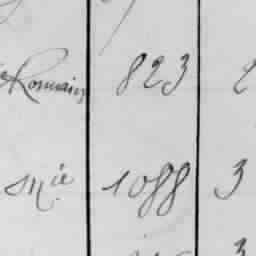 Romain 823
Mie 1088 3
3